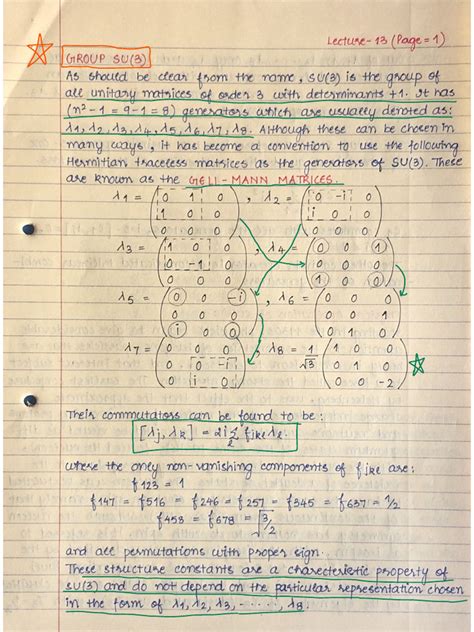 Lecture-13 (Page=1)
GROUP SU(3)
As should be clear from the name, SU(3) is the group of
all unitary matrices of order 3 with determinants +1. It has
(n²-1 = 9-1 = 8) generators which are usually denoted as:
λ1, λ2, λ3, λ4, λ5, λ6, λ7, λ8. Although these can be chosen in
many ways, it has become a convention to use the following
Hermitian traceless matrices as the generators of SU(3). These
are known as the GELL-MANN MATRICES.
λ1 = (0 1 0 , λ2 = (0 -i 0
1 0 0 i 0 0
0 0 0) 0 0 0)
λ3 = (1 0 0 , λ4 = (0 0 1
0 -1 0 0 0 0
0 0 0) 1 0 0)
λ5 = (0 0 -i , λ6 = (0 0 0
0 0 0 0 0 1
i 0 0) 0 1 0)
λ7 = (0 0 0 , λ8 = 1/√3 (1 0 0
0 0 -i 0 1 0
0 i 0) 0 0 -2)
Their commutators can be found to be:
[λj, λk] = 2i Σl fjkl λl.
where the only non-vanishing components of fjkl are:
f123 = 1
f147 = f516 = f246 = f257 = f345 = f637 = 1/2
f458 = f678 = √3/2
and all permutations with proper sign.
These structure constants are a charecteristic property of
SU(3) and do not depend on the particular representation chosen
in the form of λ1, λ2, λ3, ------, λ8.